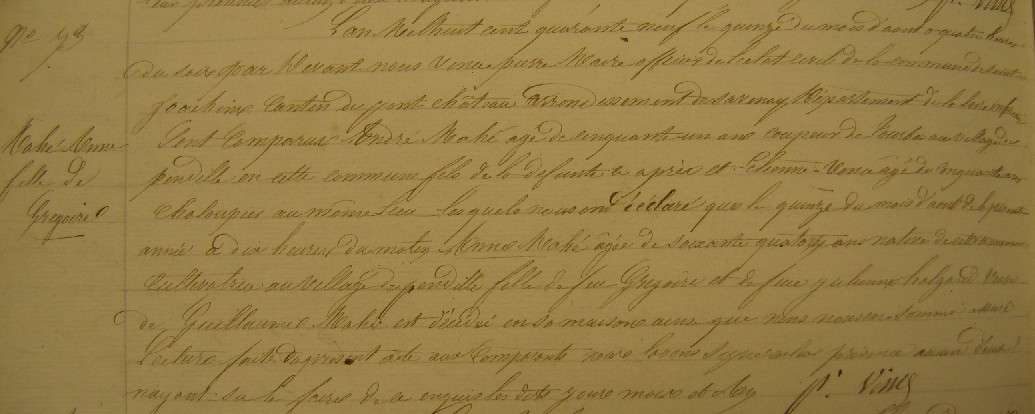 No 73
L'an Mil huit cent quarante neuf le quinze du mois d'aout a quatre heures
du soir par Devant nous Vince pierre Maire officier de l'etat civil de la commune de saint
Joachim Canton du pont château Arrondissement de savenay Département de la loire inferieure
Sont Comparus André Mahé agé de cinquante un ans coupeur de Tourbe au village de
Mahé Anne
fille de
Grégoire
pendille en cette commune fils de la defunte ci après et Etienne Vince âgé de cinquante ans
Chaloupier au même Lieu lesquels nous ont Déclaré que le quinze du mois d'aout de la presente
année à dix heures du matin Anne Mahé âgée de soixante quatorze ans native de cette commune
Cultivatrice au village de pendille fille de feu Grégoire et de feue julienne halgand Veuve
de Guillaume Mahé est décédée en sa maison ainsi que nous nous en sommes assuré
Lecture faite du présent acte aux Comparants nous l'avons signé seul les
ayant su le faire de ce enquis les dits jour mois et an
p. Vince